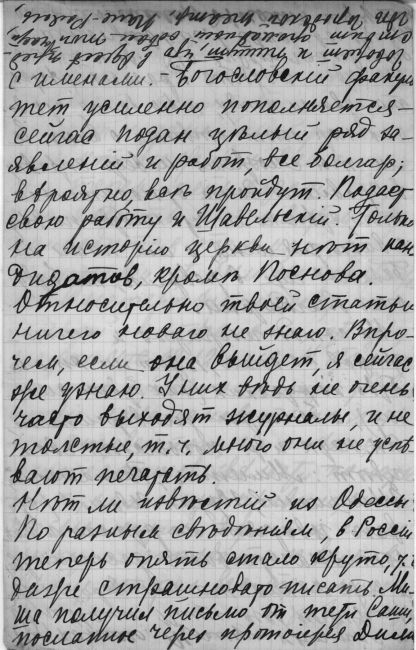 с именами. - Богословскій факуль
тет усиленно пополняется -
сейчас подан цѣлый ряд за-
явленій и работ, все болгар;
вѣроятно, всѣ пройдут. Подает
свою работу и Шавельскій. Только
на исторію церкви нѣт кан
дидатов, кромѣ Поснова.
Относительно твоей статьи
ничего новаго не знаю. Впро-
чем, если она выйдет, я сейчас
же узнаю. У них вѣдь не очень
часто выходят журналы, и не
толстые, т. ч. много они не успѣ
вают печатать.
Нѣт ли извѣстій из Одессы
По разным свѣдѣніям, в Россіи
теперь опять стало круто,
даже страшновато писать. Ми-
ша получил письмо от тети Саши
посланное через протоіерея